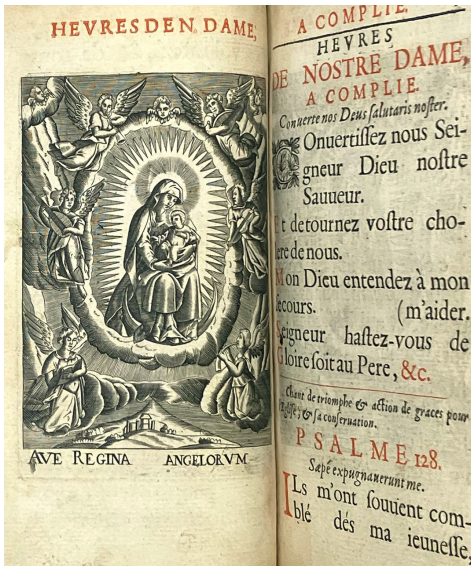 HEVRES DE N. DAME,
AVE REGINA ANGELORVM
A COMPLIE.
HEVRES
DE NOSTRE DAME,
A COMPLIE.
Conuerte nos Deus ſalutaris noſter.
COnuertiſſez nous Sei-
gneur Dieu noſtre
Sauueur.
Et detournez voſtre cho-
lere de nous.
Mon Dieu entendez à mon
ſecours. (m'aider.
Seigneur haſtez-vous de
Gloire ſoit au Pere, &c.
Chant de triomphe & action de graces pour
l'Egliſe, & ſa conſeruation.
PSALME 128.
Sæpè expugnauerunt me.
ILs m'ont ſouuent com-
blé dés ma ieuneſſe,